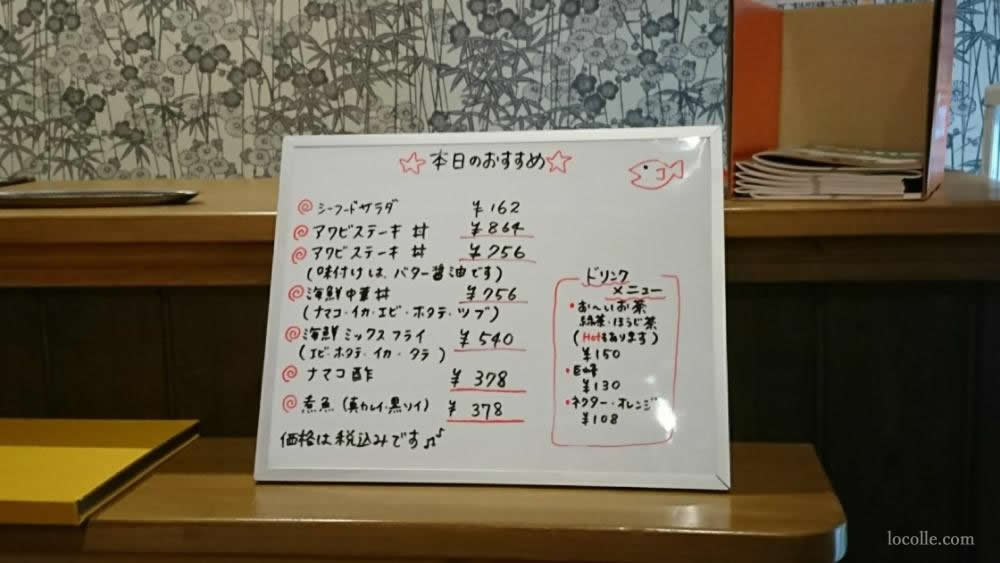 ☆本日のおすすめ☆
シーフードサラダ ¥162
アワビステーキ 丼 ¥864
アワビステーキ 丼 ¥756
(味付けは、バター醤油です)
海鮮中華丼 ¥756
(ナマコ・イカ・エビ・ホタテ・ツブ)
海鮮ミックスフライ ¥540
(エビ・ホタテ・イカ・タラ)
ナマコ酢 ¥378
煮魚(真カレイ・黒ソイ) ¥378
価格は税込みです♫
ドリンク
メニュー
・お〜いお茶
緑茶・ほうじ茶
(Hotもあります)
¥150
・巨峰
¥130
・ネクター・オレンジ
¥108
locolle.com